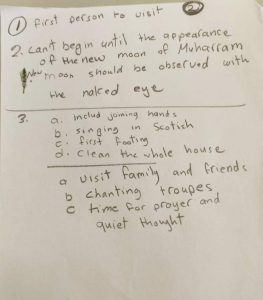 ① First person to visit
②
2. can't begin until the appearance
of the new moon of Muharram
New moon should be observed with
the naked eye
3. a. includ joining hands
b. singing in Scotish
c. first footing
d. clean the whole house
a visit family and friends
b chanting troupes
c time for prayer and
quiet thought